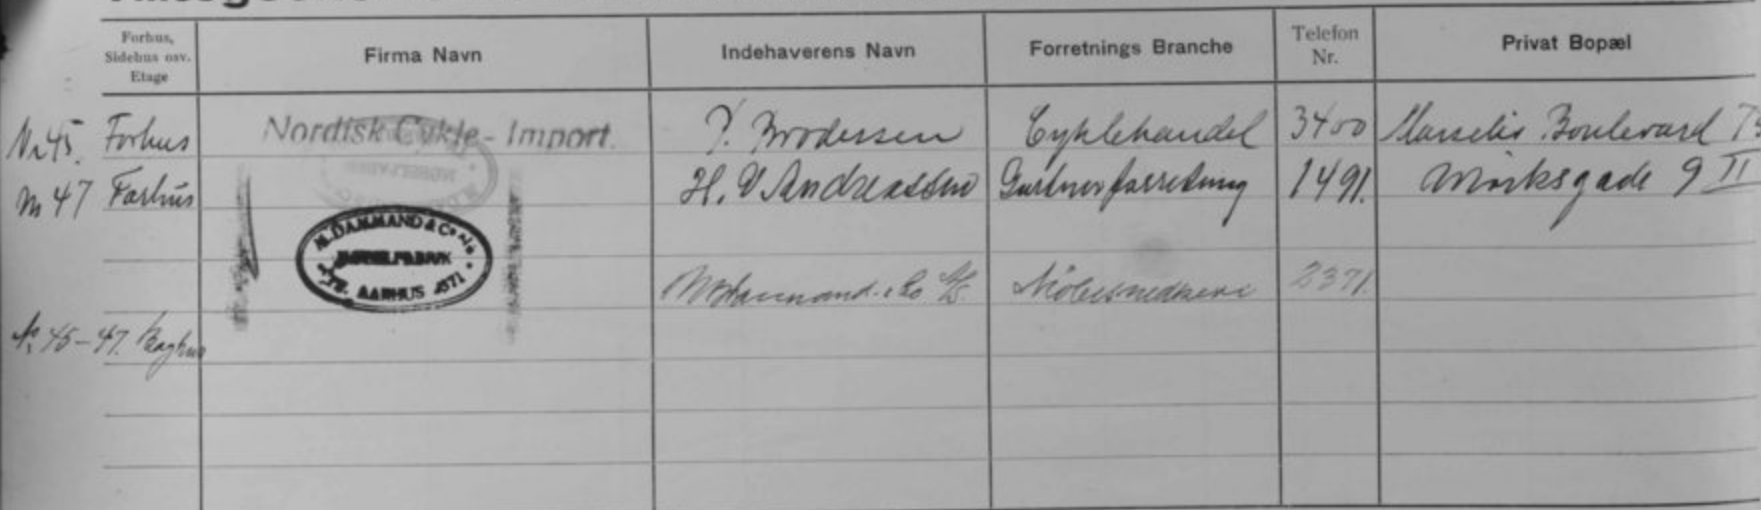 Forhus,
Sidehus osv.
Etage
Firma Navn
Indehaverens Navn
Forretnings Branche
Telefon
Nr.
Privat Bopæl
Nr 45. Forhus Nordisk Cykle-Import. P. Brodersen Cyklehandel 3400 Marselis Boulevard
Nr 47 Forhus H. V Andreassen Gartnerforretning 1491. Mørksgade 9 II
M. DAMMAND & Co A/S
MØBELFABRIK
TLF. AARHUS 2371
M Dammand & Co A/S. Møbelsnedkeri 2371.
Nr. 45-47. Baghus